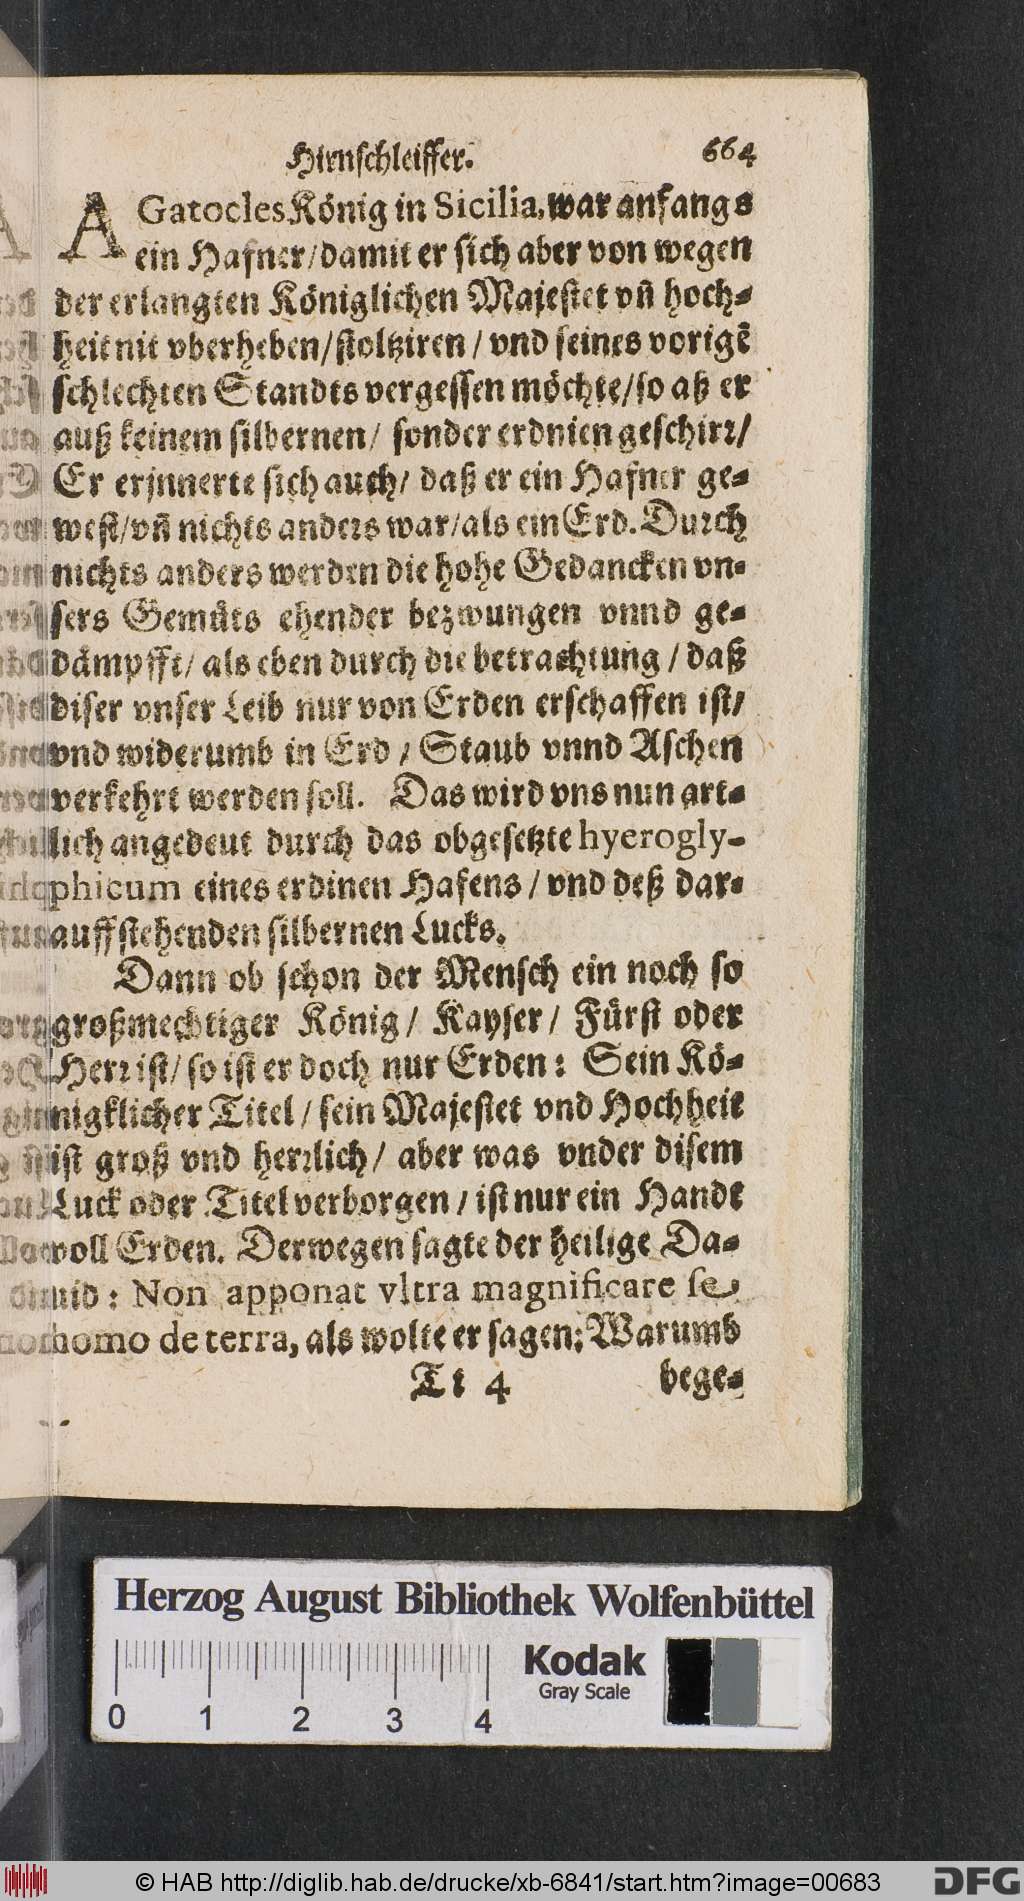 Hirnschleiffer. 664
AGatocles König in Sicilia, war anfangs
ein Hafner/damit er sich aber von wegen
der erlangten Königlichen Majestet vñ hoch-
heit nit vberheben/stoltziren/vnd seines vorigẽ
schlechten Standts vergessen möchte/so aß er
auß keinem silbernen/ sonder erdnien geschirr/
Er erjnnerte sich auch/ daß er ein Hafner ge-
west/vñ nichts anders war/als ein Erd. Durch
nichts anders werden die hohe Gedancken vn-
sers Gemüts ehender bezwungen vnnd ge-
dämpfft/ als eben durch die betrachtung/daß
diser vnser Leib nur von Erden erschaffen ist/
vnd widerumb in Erd/Staub vnnd Aschen
verkehrt werden soll. Das wird vns nun art-
lich angedeut durch das obgesetzte hyerogly-
phicum eines erdinen Hafens/vnd deß dar-
auff stehenden silbernen Lucks.
Dann ob schon der Mensch ein noch so
großmechtiger König/ Kayser/ Fürst oder
Herr ist/ so ist er doch nur Erden: Sein Kö-
nigklicher Titel/sein Majestet vnd Hochheit
ist groß vnd herrlich/ aber was vnder disem
Luck oder Titel verborgen/ist nur ein Handt
voll Erden. Derwegen sagte der heilige Da-
uid: Non apponat vltra magnificare se
homo de terra, als wolte er sagen: Warumb
Tt 4 bege-
Herzog August Bibliothek Wolfenbüttel
Kodak
Gray Scale
0 1 2 3 4
© HAB http://diglib.hab.de/drucke/xb-6841/start.htm?image=00683
DFG